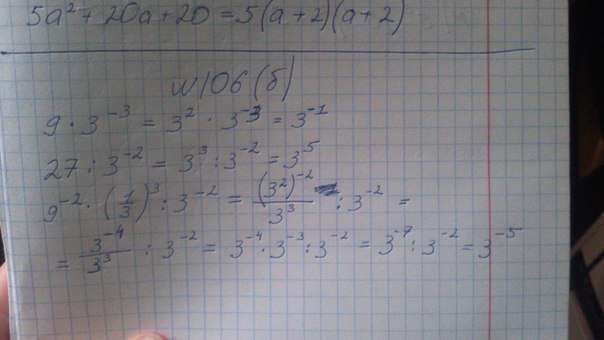 5a² + 20a + 20 = 5(a + 2)(a + 2)
№106 (б)
9 · 3⁻³ = 3² · 3⁻³ = 3⁻¹
27 : 3⁻² = 3³ : 3⁻² = 3⁵
9⁻² · (1/3)³ : 3⁻² = (3²)⁻²/3³ : 3⁻² =
= 3⁻⁴/3³ : 3⁻² = 3⁻⁴ · 3⁻³ : 3⁻² = 3⁻⁷ : 3⁻² = 3⁻⁵